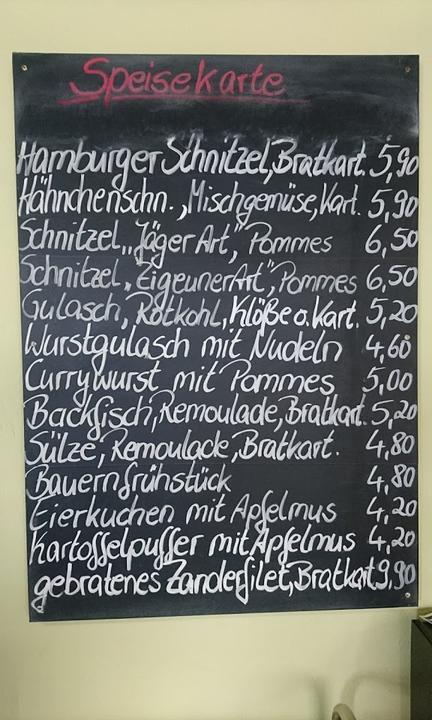 Speisekarte
Hamburger Schnitzel, Bratkart. 5,90
Hähnchenschn., Mischgemüse, Kart. 5,90
Schnitzel „Jäger Art", Pommes 6,50
Schnitzel „ZigeunerArt", Pommes 6,50
Gulasch, Rotkohl, Klöße o. Kart. 5,20
Wurstgulasch mit Nudeln 4,60
Currywurst mit Pommes 5,00
Backfisch, Remoulade, Bratkart. 5,20
Sülze, Remoulade, Bratkart. 4,80
Bauernfrühstück 4,80
Eierkuchen mit Apfelmus 4,20
Kartoffelpuffer mit Apfelmus 4,20
gebratenes Zanderfilet, Bratkart 9,90